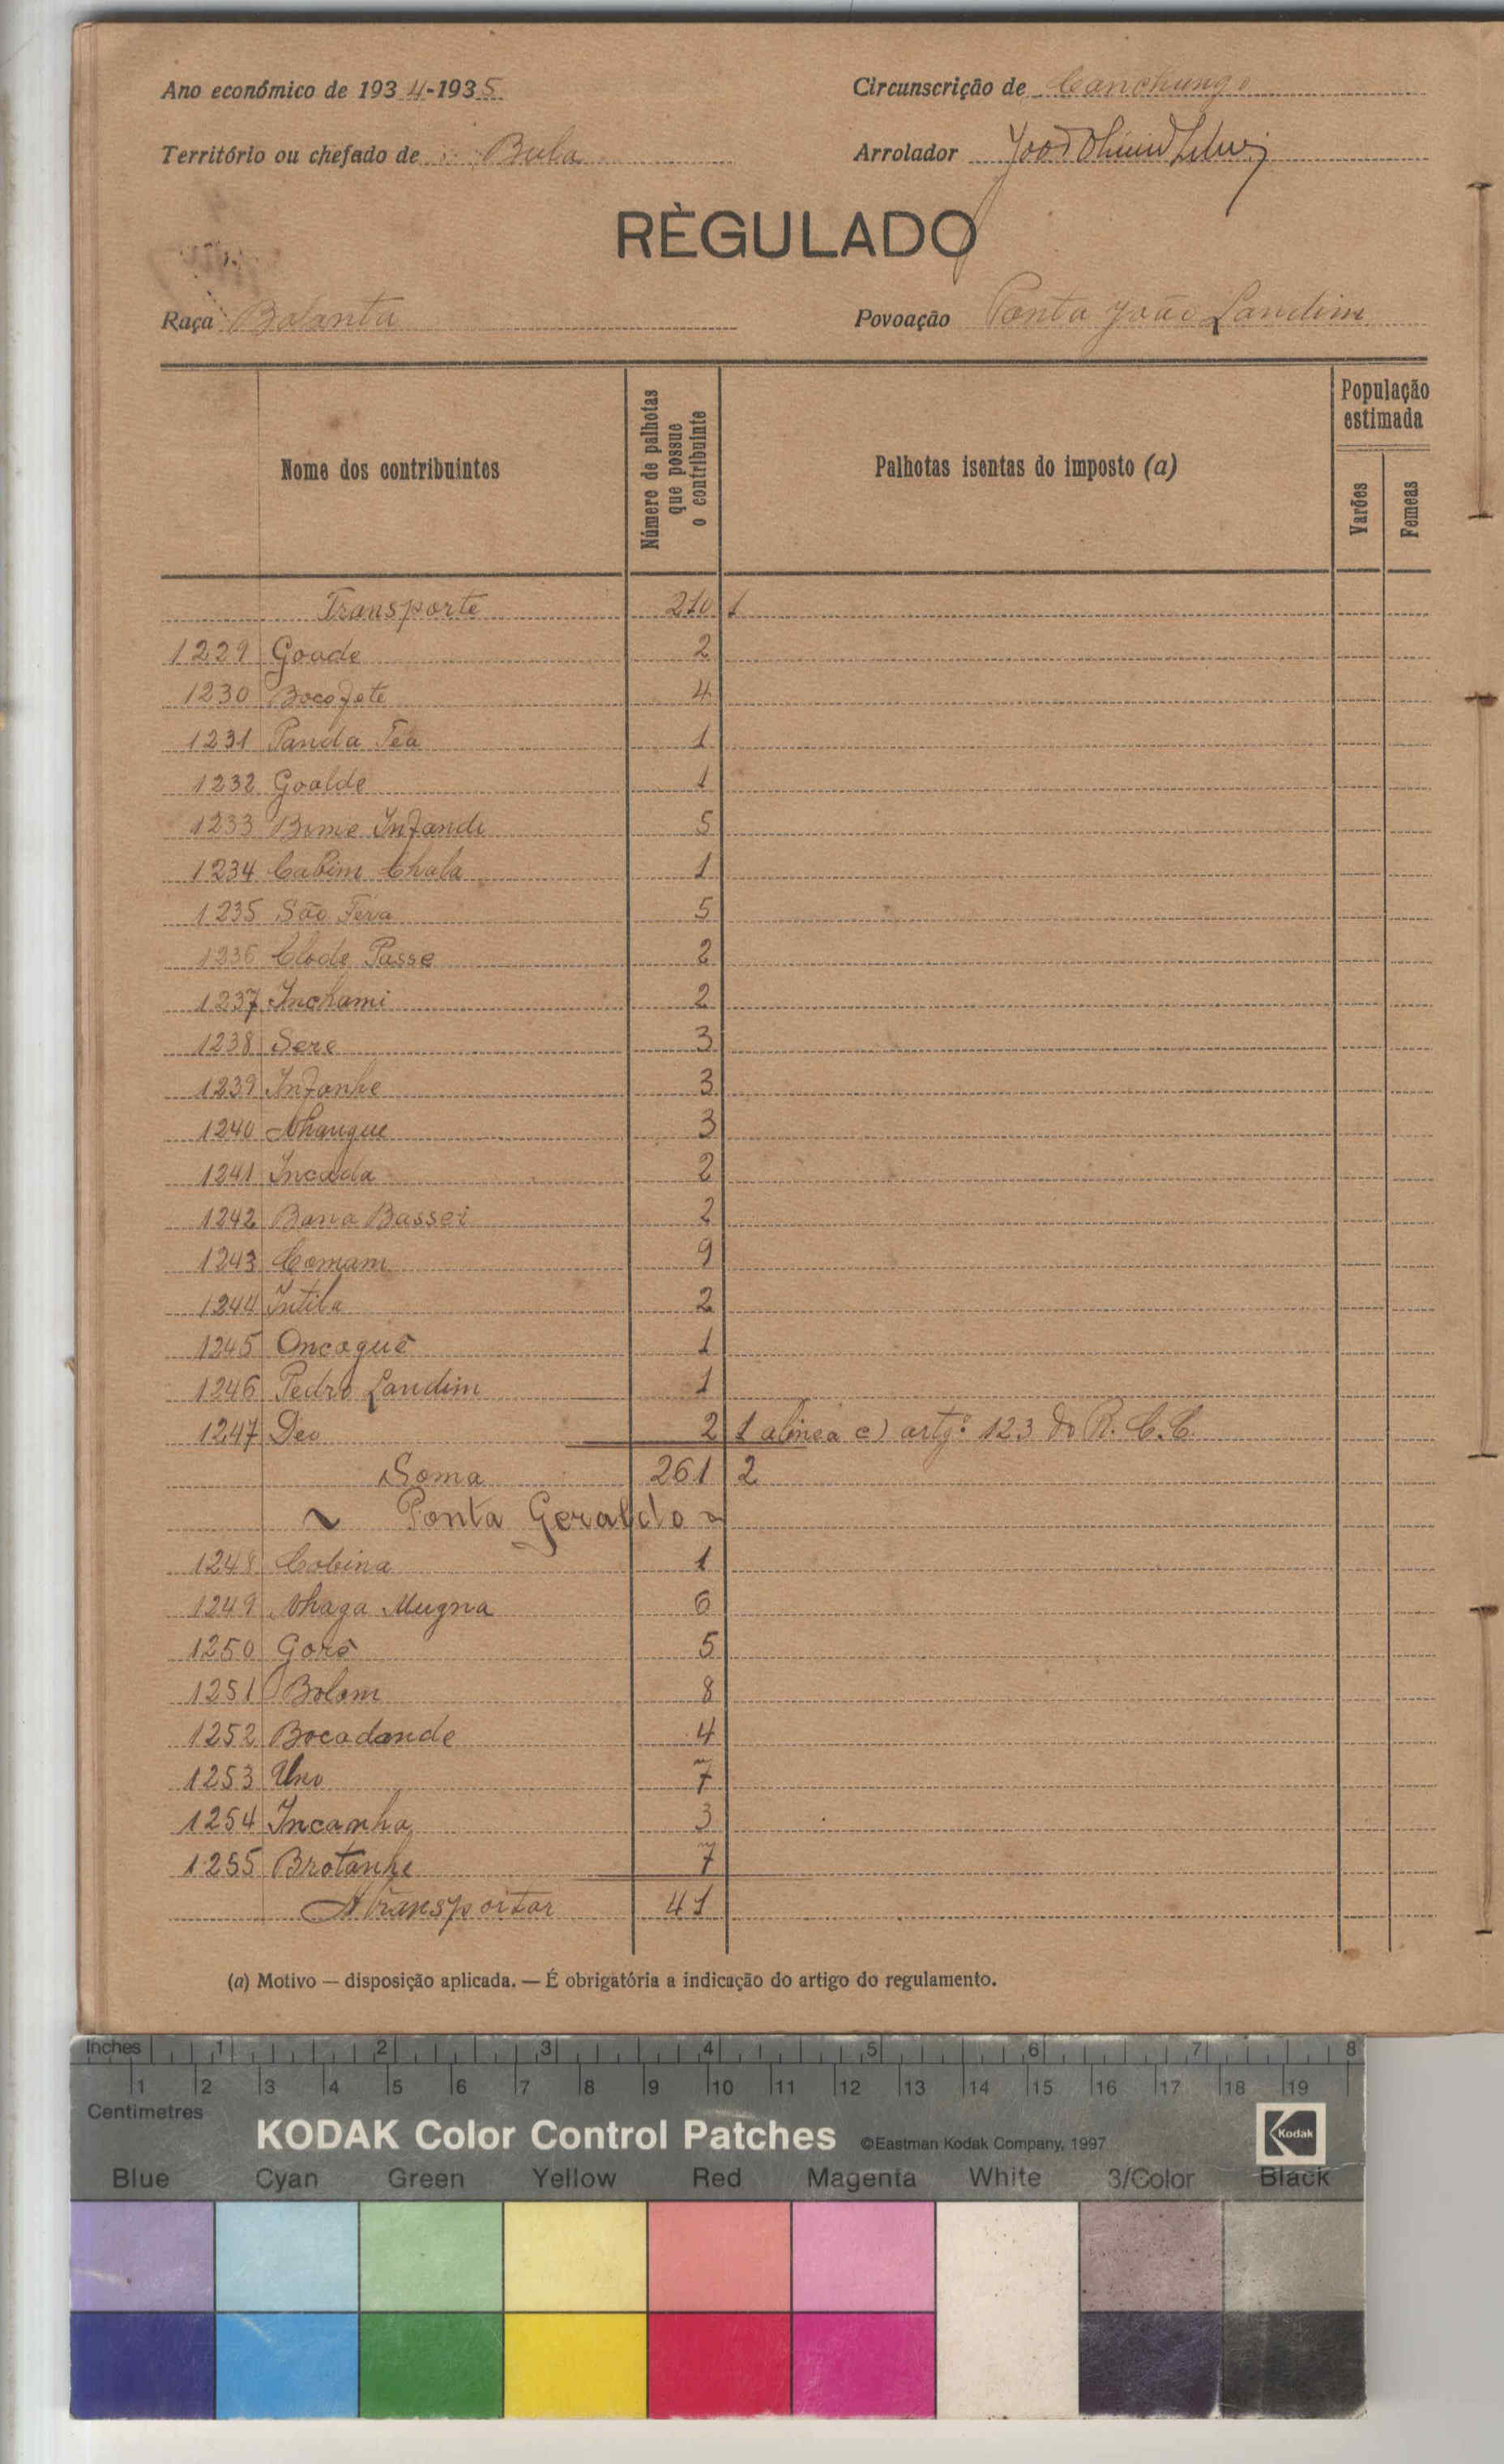 Ano económico de 1934-1935 Circunscrição de Canchungo
Território ou chefado de Bula Arrolador João
RÈGULADO
Raça Balanta Povoação Ponta João Landim
Nome dos contribuintes
Número de palhotas que possue o contribuinte
Palhotas isentas do imposto (a)
População estimada
Varões
Femeas
Transporte 210 1
1229 Goude 2
1230 Bocofote 4
1231 Panda Tea 1
1232 Goalde 1
1233 Bime Infande 5
1234 Cabim Chala 1
1235 São Féra 5
1236 Clode Passe 2
1237 Inchami 2
1238 Sere 3
1239 Infanhe 3
1240 Nhangue 3
1241 Incada 2
1242 Bana Bassei 2
1243 Comam 9
1244 Intila 2
1245 Oncoguê 1
1246 Pedro Landim 1
1247 Deo 2 1 alinea c) artgº 123 do R. C. C.
Soma 261 2
~ Ponta Geraldo ~
1248 Cobina 1
1249 Nhaga Mugna 6
1250 Gorê 5
1251 Bolom 8
1252 Bocadande 4
1253 Uno 7
1254 Incanha 3
1255 Brotanhe 7
A transportar 41
(a) Motivo — disposição aplicada. — É obrigatória a indicação do artigo do regulamento.
Inches 1 2 3 4 5 6 7 8
1 2 3 4 5 6 7 8 9 10 11 12 13 14 15 16 17 18 19
Centimetres
KODAK Color Control Patches ©Eastman Kodak Company, 1997 Kodak
Blue Cyan Green Yellow Red Magenta White 3/Color Black